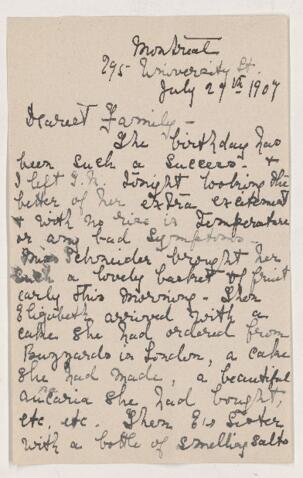 Montreal
295 University St.
July 27th 1907
Dearest Family -
The birthday has
been such a success - &
I left J.N. tonight looking the
better of her extra excitement
& with no rise in temperature
or any bad symptoms -
Miss Schneider brought her
such a lovely basket of fruit
early this morning - Then
Elizabeth arrived with a
cake she had ordered from
Buzzards in London, a cake
she had made, a beautiful
aucaria she had bought,
etc. etc. Then Sister
with a bottle of smelling salts